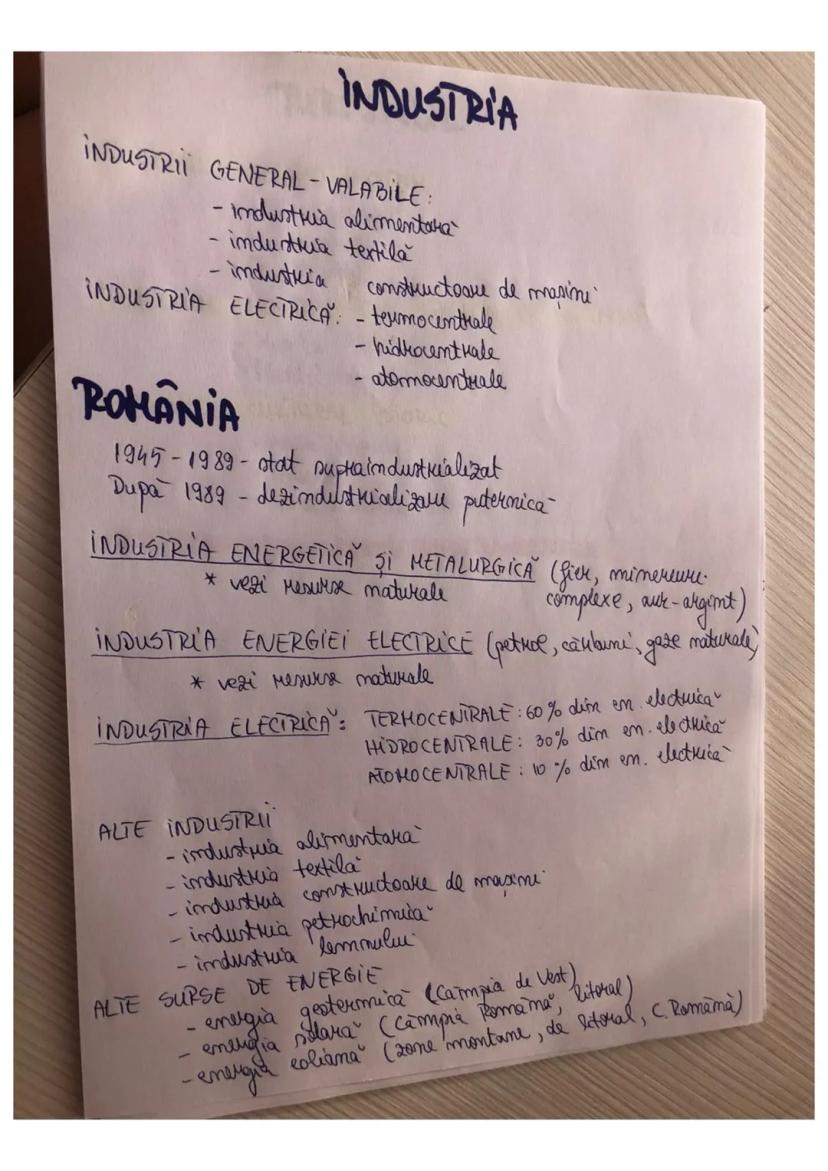 INDUSTRIA
INDUSTRII GENERAL-VALABILE:
- industria alimentară
- industria textilă
- industria constructoare de mașini
INDUSTRIA ELECTRICĂ: - termocentrale
- hidrocentrale
- atomocentrale
ROMÂNIA
1945-1989 - stat supraindustrializat
După 1989 - dezindustrializare puternică
INDUSTRIA ENERGETICĂ ȘI METALURGICĂ (fier, minereuri
complexe, aur-argint)
* vezi resurse naturale
INDUSTRIA ENERGIEI ELECTRICE (petrol, cărbuni, gaze naturale)
* vezi resurse naturale
INDUSTRIA ELECTRICĂ: TERMOCENTRALE: 60% din en. electrică
HIDROCENTRALE: 30% din en. electrică
ATOMOCENTRALE: 10% din en. electrică
ALTE INDUSTRII
- industria alimentară
- industria textilă
- industria constructoare de mașini
- industria petrochimică
- industria lemnului
ALTE SURSE DE ENERGIE
- energia geotermică (Câmpia de Vest)
- energia solară (Câmpia Română, litoral)
- energia eoliană (zone montane, de litoral, C. Română)